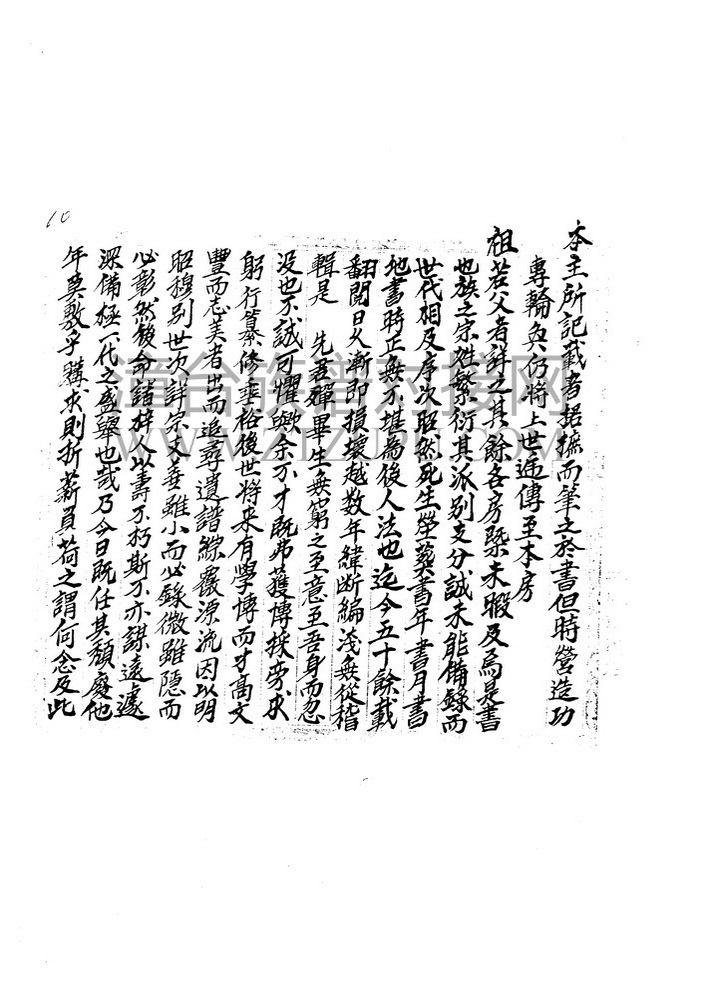 10
本主所記載者据摭而筆之於書但時營造功
專輪奐仍將上世逓傳至本房
祖若父者詳之其餘各房槩未暇及焉是書
也族之宗姓繁衍其派別支分誠未能備錄而
世代相及序次昭然死生塋葬書年書月書
地書時正無不堪為後人法也迄今五十餘載
翻閱日久漸即損壞越数年緯断編淺無從稽
輯是 先吾殫畢生無窮之至意至吾身而忽
没也不誠可懼歟余不才既弗獲博採旁求
躬行纂修垂裕後世將来有學博而才高文
豐而志美者出而追尋遺譜綜覈源流因以明
昭穆別世次詳宗支垂雖小而必錄微雖隐而
必彰然後命諸梓人以壽不朽斯不亦謀遠
深備極一代之盛舉也哉乃今日既任其頽廢他
年莫敷乎購求則折薪負荷之謂何念及此
漳台族谱对接网
WWW.ZTZUPU.COM